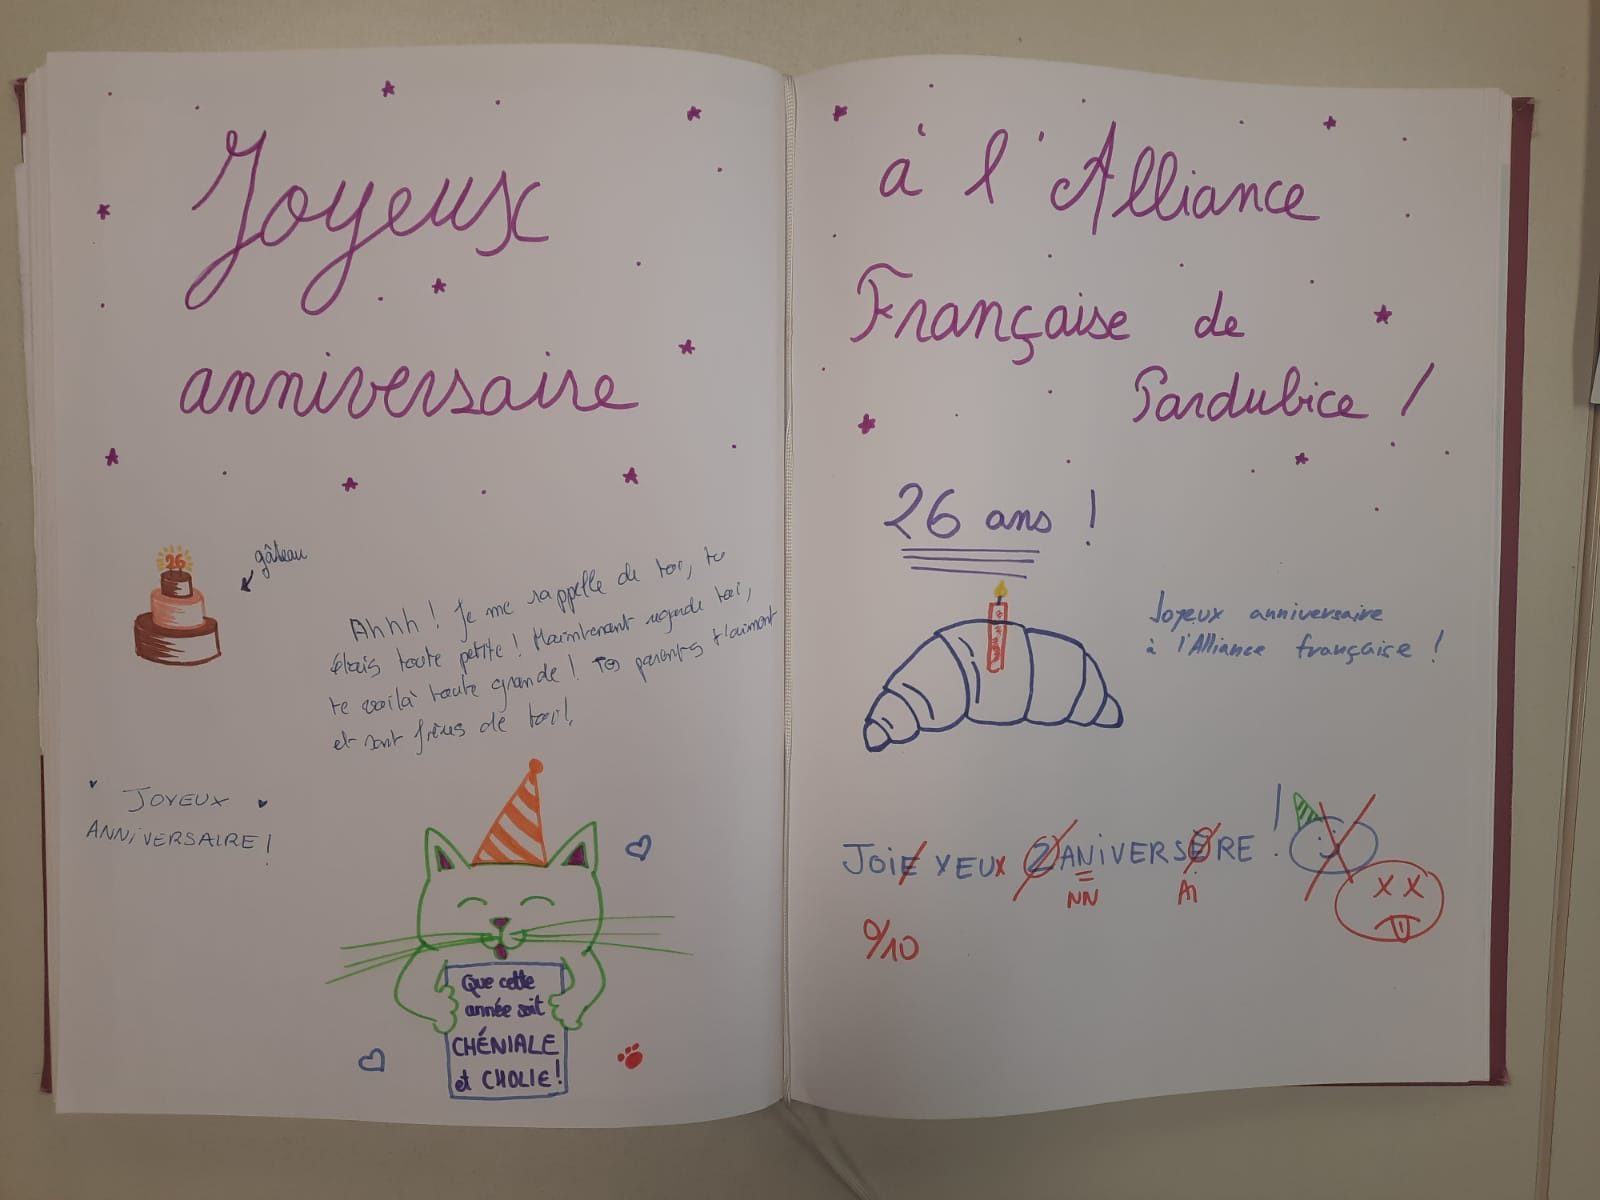 Joyeux
anniversaire
26
gâteau
Ahhh ! Je me rappelle de toi, tu
étais toute petite ! Maintenant regarde toi,
te voilà toute grande ! Tes parents t'aiment
et sont fières de toi !
JOYEUX
ANNIVERSAIRE !
Que cette
année soit
CHÉNIALE
et CHOLIE !
à l'Alliance
Française de
Pardubice !
26 ans !
Joyeux anniversaire
à l'Alliance française !
JOIE XEUX 2ANIVERSERE !
NN AI
9/10